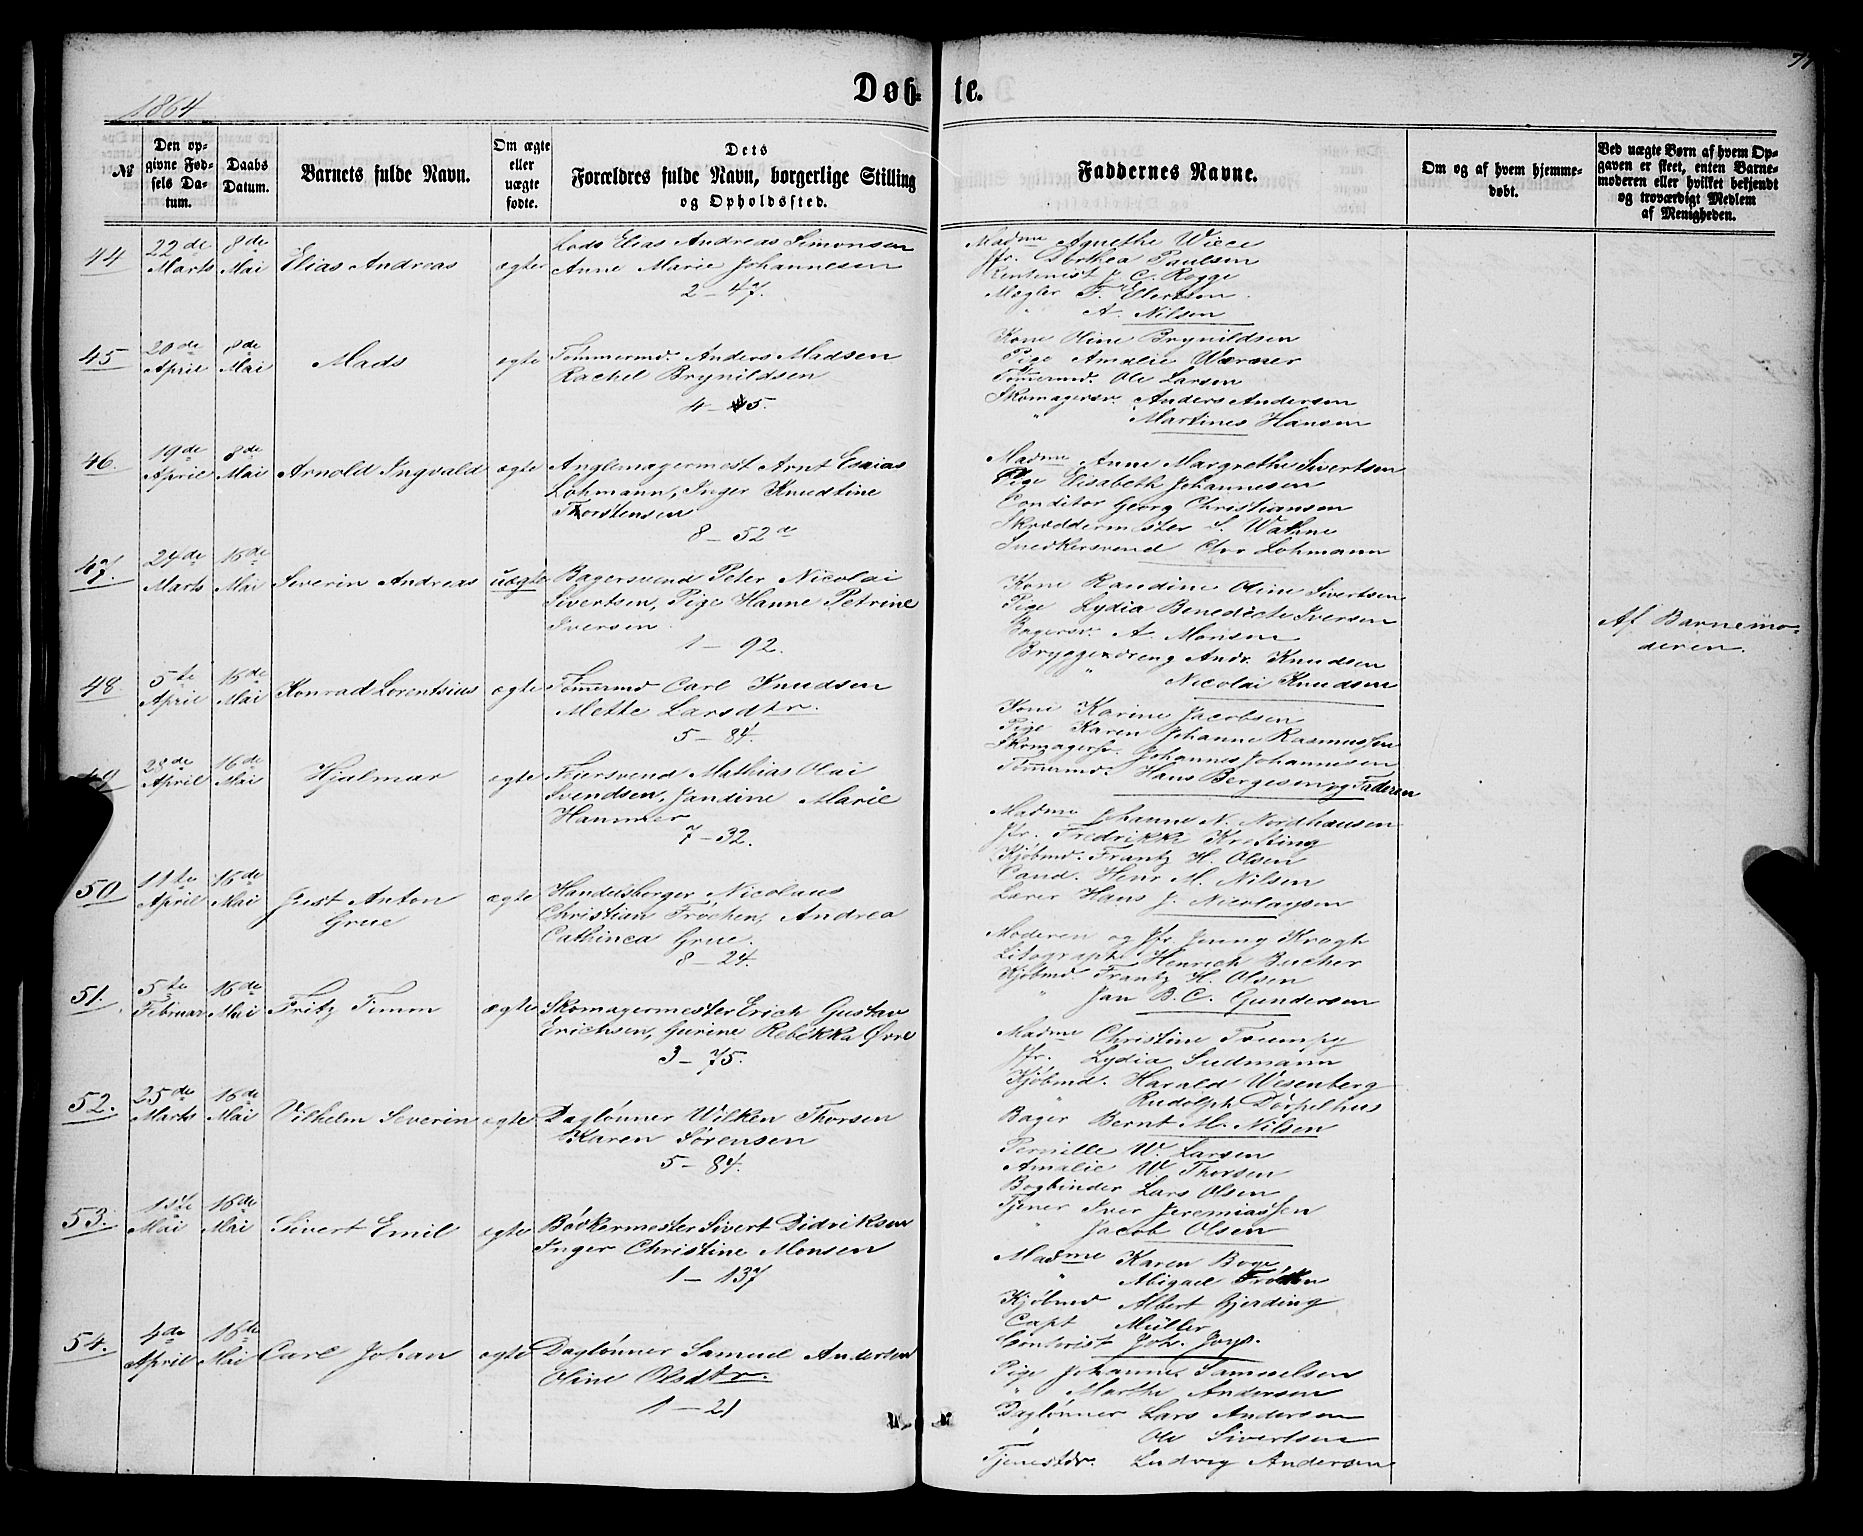 1864
Døbte.
77
№
Den opgivne Fødsels Datum.
Daabs Datum.
Barnets fulde Navn.
Om ægte eller uægte fødte.
Dets Forældres fulde Navn, borgerlige Stilling og Opholdssted.
Faddernes Navne.
Om og af hvem hjemmedøbt.
Ved uægte Børn af hvem Opgaven er skeet, enten Barnemoderen eller hvilket bekjendt og troværdigt Medlem af Menigheden.
44
22de Marts
8de Mai
Elias Andreas
ægte
Lods Elias Andreas Simonsen
Anne Marie Johannesen
2 - 47.
Madme Agnethe Wiece
Jfr. Dorthea Paulsen
J. C. Rogge
Mægler F. Ellertsen
" A. Nilsen
45
20de April
8de Mai
Mads
ægte
Tømmermd. Anders Madsen
Rachel Brynildsen
4 - 5.
Kone Oline Brynildsen
Pige Amalie Wærner
Tømermd. Ole Larsen
Skomagersv. Anders Andersen
" Martines Hansen
46.
19de April
8de Mai
Arnold Ingvald
ægte
Anglemagermest Arnt Esaias
Lohmann, Inger Knudtine
Thorstensen
8 - 52 d
Madme Anne Margrethe Sivertsen
Pige Elisabeth Johannesen
Conditor Georg Christiansen
Skræddermester S. Wathne
Snedkersvend Lohmann
47.
24de Marts
16de Mai
Severin Andreas
uægte
Bagersvend Peter Nicolai
Sivertsen, Pige Hanne Petrine
Iversen
1 - 92.
Kone Randine Oline Sivertsen
Pige Lydia Benedicte Iversen
Bagersv. A. Monsen
Bryggedreng Andr. Knudsen
" Nicolai Knudsen
Af Barnemo-
deren.
48
5te April
16de Mai
Konrad Lorentsius
ægte
Tømermd Carl Knudsen
Mette Larsdtr.
5 - 84.
Kone Karine Jacobsen
Pige Karen Johanne Rasmussen
Skomagersv. Johannes Johannesen
Tømermd. Hans Bergesen og Faderen
49
28de April
16de Mai
Hjalmar
ægte
Feiersvend Mathias Olai
Svendsen, Jandine Marie
Hammer
7 - 32.
Madme Johanne N. Nordhausen
Jfr. Fredrikke Kresting
Kjøbmd. Frantz H. Olsen
Cand. Henr M. Nilsen
Lærer Hans J. Nicolaysen
50
11te April
16de Mai
Just Anton
Grue
ægte
Handelsborger Nicolaus
Christian Frøchen, Andrea
Cathinca Grue.
8 - 24.
Moderen og Jfr. Jenny Krogh
Litograph Henrich Bucher
Kjøbmd Frantz H. Olsen
" Jan B. C. Gundersen
51.
5te Februar
16de Mai
Fritz Timm
ægte
Skomagermester Erich Gustav
Erichsen, Gurine Rebekka Øvre
3 - 75.
Madme Christine Trumpy
Jfr. Lydia Sudmann
Kjøbmd. Harald Wesenberg
" Rudolph Dørpelhus
Bager Bernt M. Nilsen
52.
25de Marts
16de Mai
Vilhelm Severin
ægte
Daglønner Wilken Thorsen
Karen Sørensen
5 - 84.
Pernille W. Larsen
Amalie W. Thorsen
Bogbinder Lars Olsen
Tjener Iver Jeremiassen
" Jacob Olsen
53.
Mai
16de Mai
Sivert Emil
ægte
Bødkermester Sivert Didriksen
Inger Christine Monsen
1 - 137
Madme Karen Boge
" Abigael
Kjøbmd Albert Gjerding
Capt Müller
Contorist Joh.
54.
4de April
16de Mai
Carl Johan
ægte
Daglønner Samuel Andersen
Oline Olsdtr.
1 - 21
Pige Johanne Samuelsen
" Marthe Andersen
Daglønner Lars Andersen
" Ole Sivertsen
Tjenestdr. Ludvig Andersen